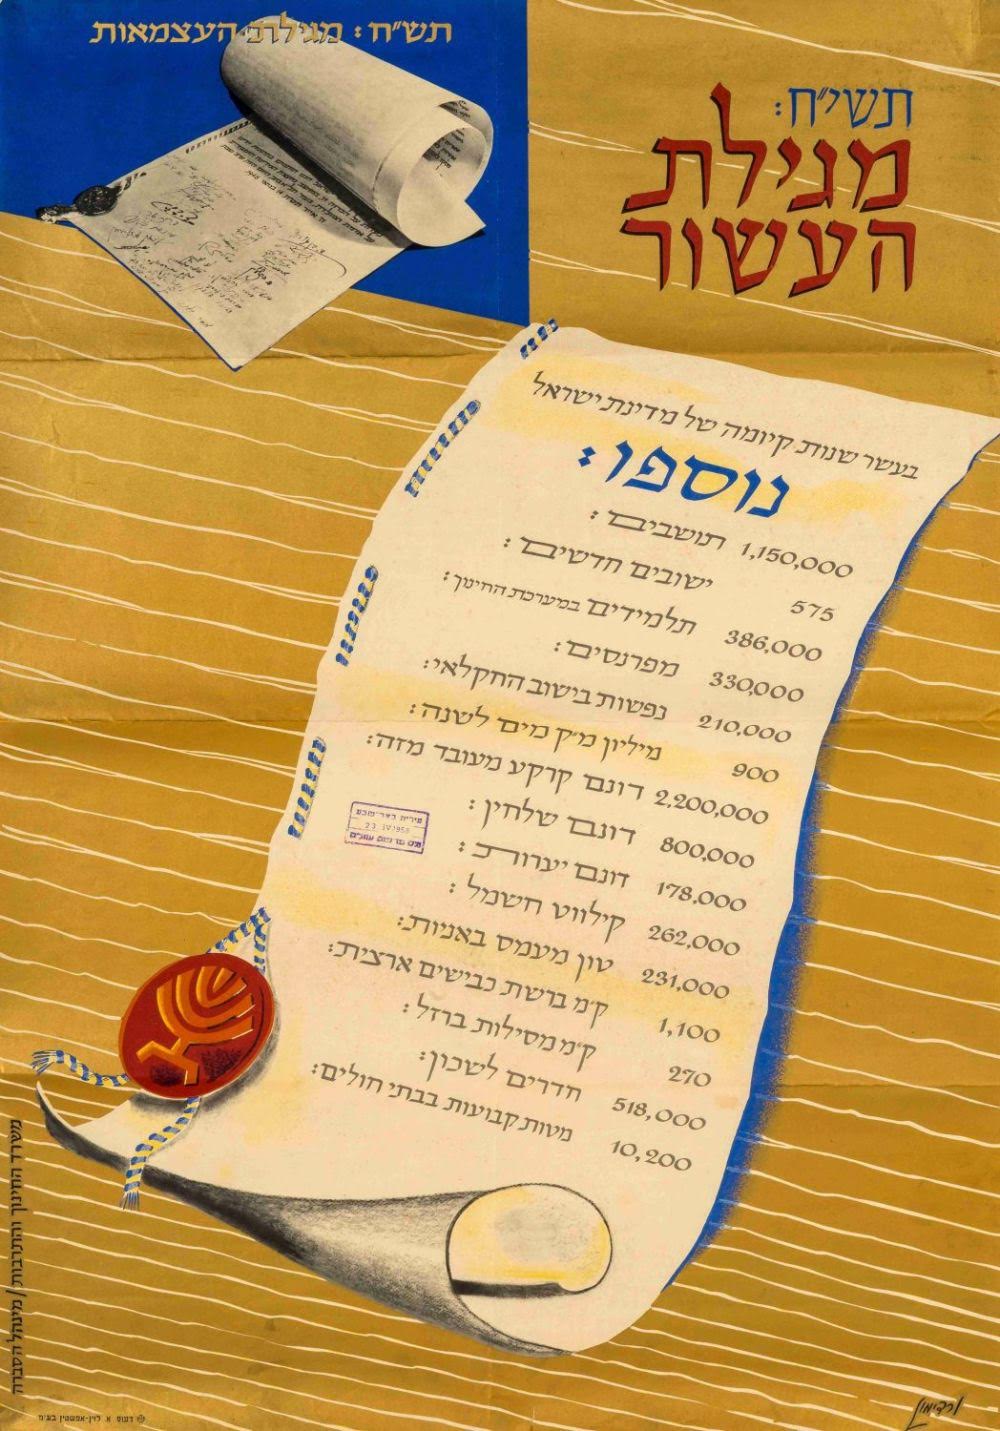 תש״ח: מגילת העצמאות
תשי״ח:
מגילת
העשור
בעשר שנות קיומה של מדינת ישראל
נוספו:
1,150,000 תושבים:
575 ישובים חדשים:
386,000 תלמידים במערכת החינוך:
330,000 מפרנסים:
210,000 נפשות בישוב החקלאי:
900 מיליון מ״ק מים לשנה:
2,200,000 דונם קרקע מעובד מזה:
800,000 דונם שלחין:
178,000 דונם יערות:
262,000 קילווט חשמל:
231,000 טון מעמס באניות:
1,100 ק״מ ברשת כבישים ארצית:
270 ק״מ מסילות ברזל:
518,000 חדרים לשכון:
10,200 מטות קבועות בבתי חולים:
עירית באר-שבע
23 IV 1958
משרד החינוך והתרבות / מינהל הסברה
דפוס א. לוין-אפשטין בע״מ
ורדימון